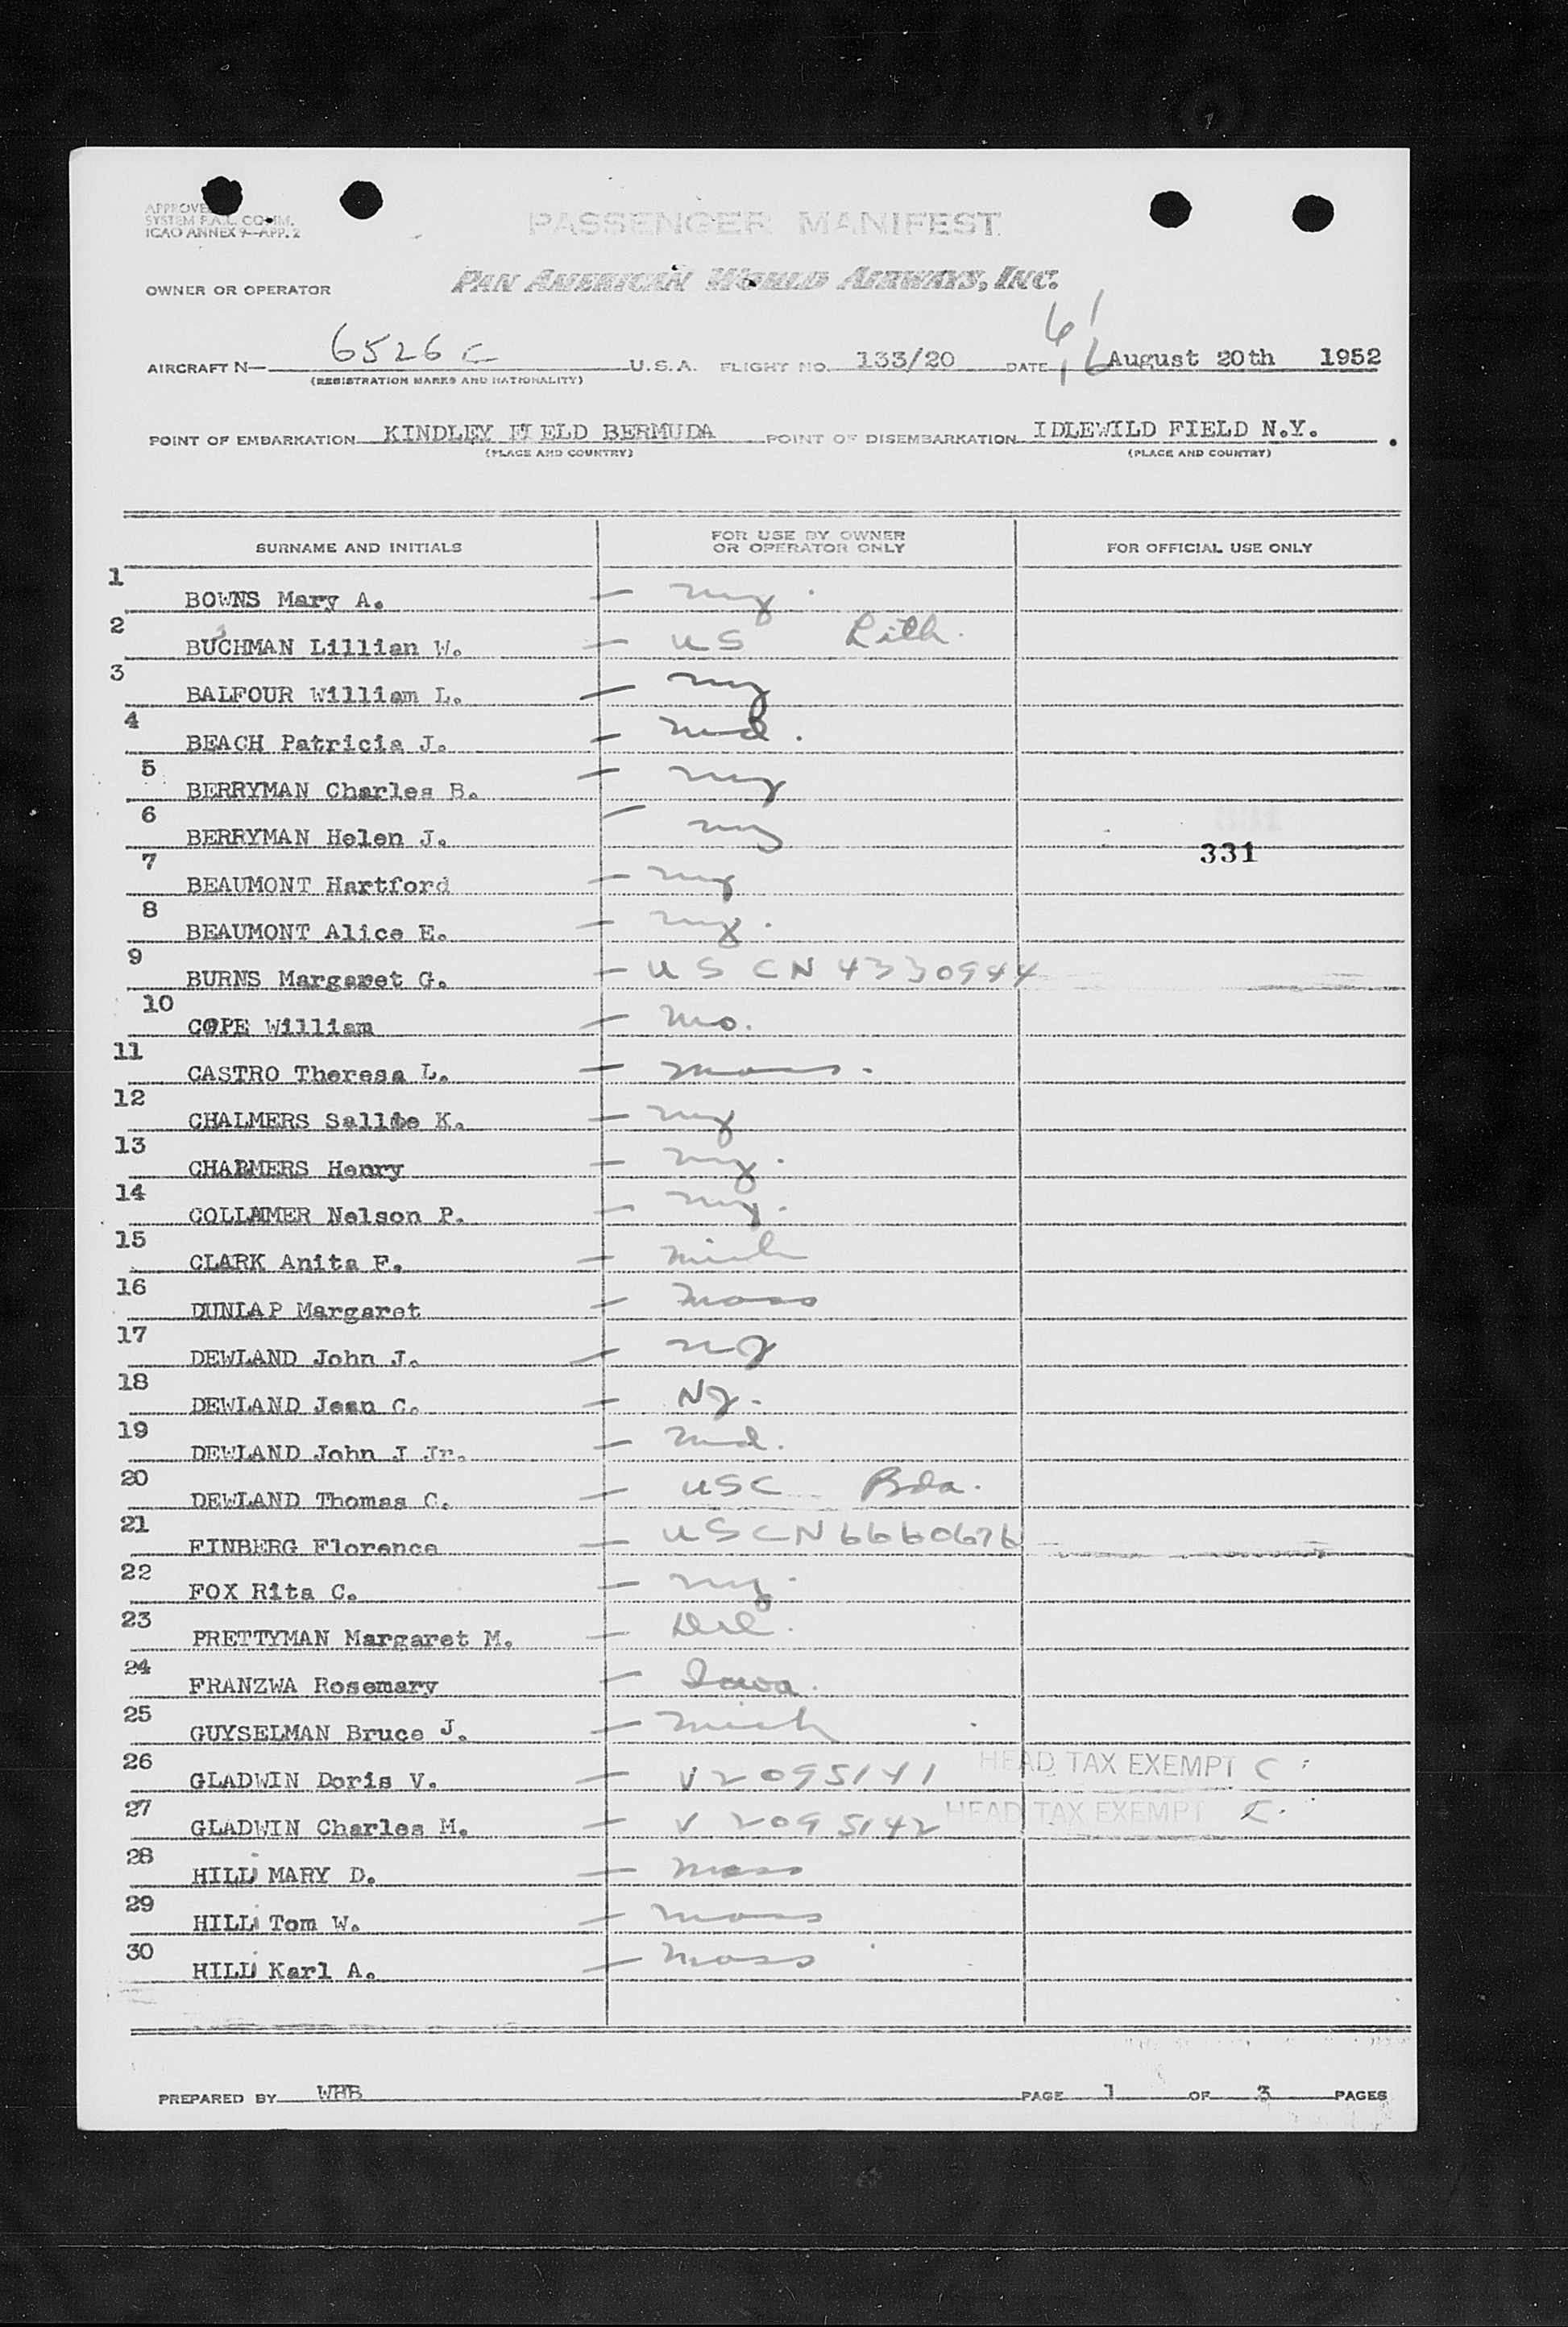 APPROVED
SYSTEM F.A.L. COMM.
ICAO ANNEX 9—APP. 2
PASSENGER MANIFEST
OWNER OR OPERATOR PAN AMERICAN WORLD AIRWAYS, INC.
AIRCRAFT N— 6526 C U.S.A. FLIGHT NO. 133/20 DATE August 20th 1952
(REGISTRATION MARKS AND NATIONALITY)
POINT OF EMBARKATION KINDLEY FIELD BERMUDA POINT OF DISEMBARKATION IDLEWILD FIELD N.Y.
(PLACE AND COUNTRY) (PLACE AND COUNTRY)
SURNAME AND INITIALS FOR USE BY OWNER OR OPERATOR ONLY FOR OFFICIAL USE ONLY
1 BOWNS Mary A. — ny.
2 BUCHMAN Lillian W. — US Lith.
3 BALFOUR William L. — ny
4 BEACH Patricia J. — md.
5 BERRYMAN Charles B. — ny
6 BERRYMAN Helen J. — ny
331
7 BEAUMONT Hartford — ny
8 BEAUMONT Alice E. — ny.
9 BURNS Margaret G. — US CN 4330944
10 COPE William — mo.
11 CASTRO Theresa L. — mass.
12 CHALMERS Sallie K. — ny
13 CHALMERS Henry — ny.
14 COLLAMER Nelson P. — ny.
15 CLARK Anita F. — mich
16 DUNLAP Margaret — mass
17 DEWLAND John J. — nJ
18 DEWLAND Jean C. — NJ.
19 DEWLAND John J Jr. — md.
20 DEWLAND Thomas C. — USC Bda.
21 FINBERG Florence — US CN 6660676
22 FOX Rita C. — ny.
23 PRETTYMAN Margaret M. — Del.
24 FRANZWA Rosemary — Iowa.
25 GUYSELMAN Bruce J. — mich
26 GLADWIN Doris V. — V 2095141 HEAD TAX EXEMPT C
27 GLADWIN Charles M. — V 2095142 HEAD TAX EXEMPT C.
28 HILL MARY D. — mass
29 HILL Tom W. — mass
30 HILL Karl A. — mass
PREPARED BY WHB PAGE 1 OF 3 PAGES